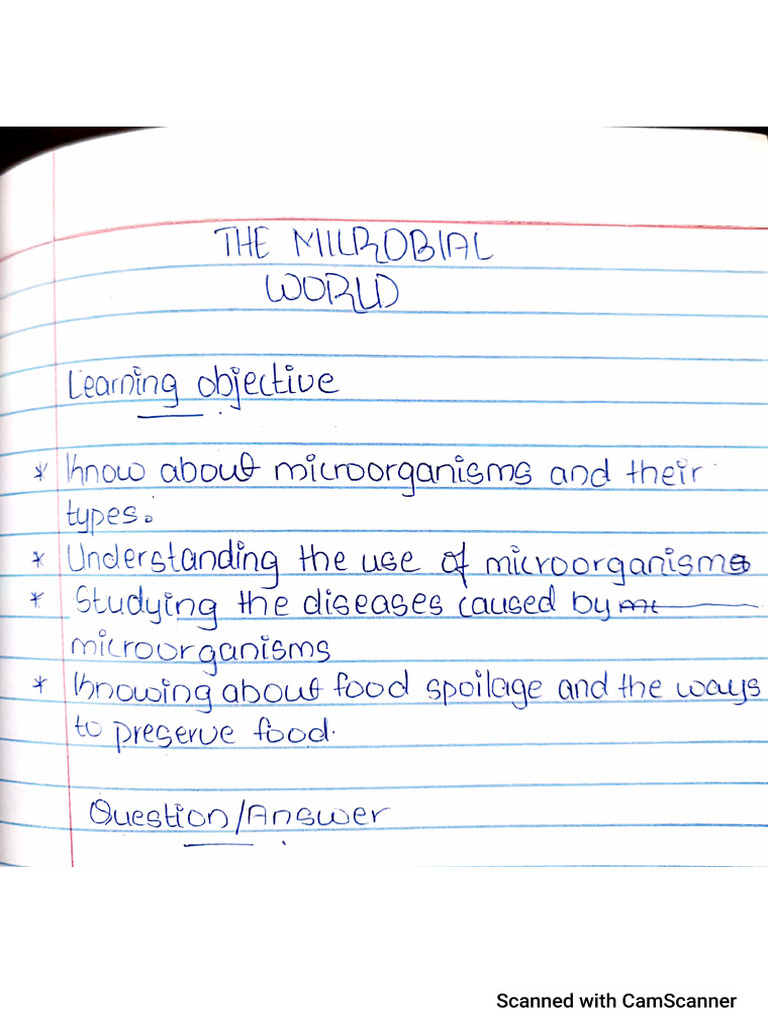 THE MICROBIAL
WORLD
Learning objective
* Know about microorganisms and their
types.
* Understanding the use of microorganisms
* Studying the diseases caused by
microorganisms
* Knowing about food spoilage and the ways
to preserve food.
Question/Answer
Scanned with CamScanner